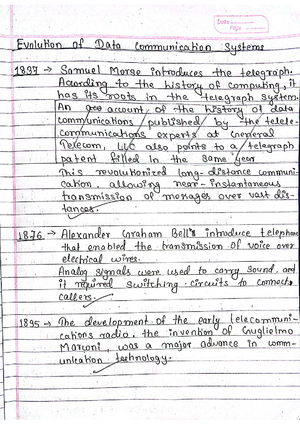 Date
Page
Evolution of Data Communication Systems
1837 → Samuel Morse introduces the telegraph.
According to the history of computing, it
has its roots in the telegraph system.
An account of the history of data
communications published by the tele-
communications experts at General
Telecom, LLC also points to a telegraph
patent filled in the same year
This revolutionized long-distance communi-
cation, allowing near-instantaneous
transmission of messages over vast dis-
tances.
1876 → Alexander Graham Bell's introduce telephone
that enabled the transmission of voice over
electrical wires.
Analog signals were used to carry sound, and
it required switching circuits to connect
callers.
1895 → The development of the early telecommuni-
cations radio, the invention of Guglielmo
Marconi, was a major advance in comm-
unication technology.